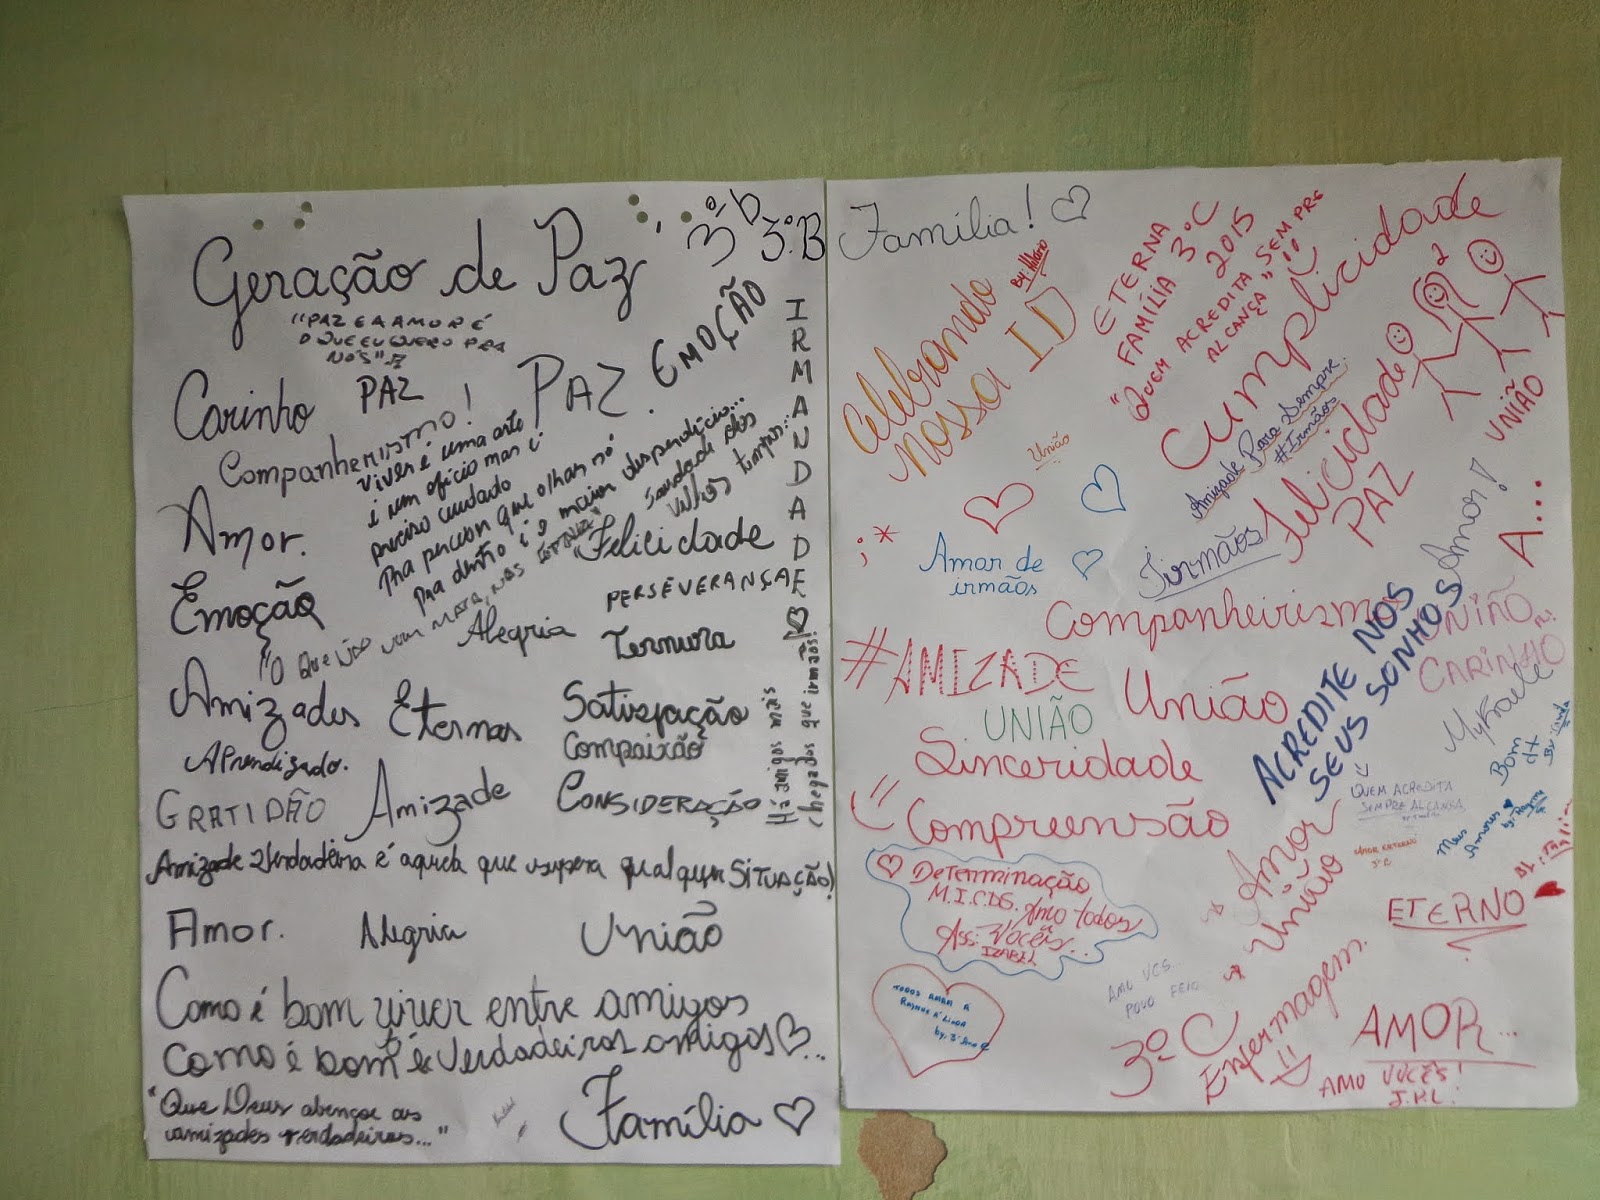 Geração de Paz
3º b
3º.B
"PAZ E A AMOR É
O QUE EU QUERO PRA
NÓS"
Carinho
PAZ
PAZ.
EMOÇÃO
IRMANDADE
Companheirismo!
viver é uma arte
é um ofício mas é
preciso cuidado
Pra perceber que olhar só
Pra dentro é o maior desperdício...
saudade dos
velhos tempos...
Amor.
"Felicidade
Emoção
PERSEVERANÇA
"O que não nos mata, nos fortalece"
Alegria
Ternura
Há amigos mais
chegados que irmãos!
Amizades Eternas
Satisfação
Compaixão
Aprendizado.
GRATIDÃO
Amizade
CONSIDERAÇÃO
Amizade Verdadeira é aquela que supera qualquer SITUAÇÃO!
Amor.
Alegria
União
Como é bom viver entre amigos
Como é bom é verdadeiros amigos...
"Que Deus abençoe as
amizades verdadeiras..."
Família
Família!
Celebrando
nossa ID
ETERNA
FAMÍLIA 3ºC
2015
"QUEM ACREDITA SEMPRE
ALCANÇA"
Cumplicidade
Amizade Para Sempre
#Irmãos
União
Felicidade
PAZ
UNIÃO
;*
Amor de
irmãos
Irmãos
Amor!
A...
Companheirismo
ACREDITE NOS
SEUS SONHOS
UNIÃO
CARINHO
#AMIZADE
União
UNIÃO
Sinceridade
Mykaele
Bom
d+
QUEM ACREDITA
SEMPRE ALCANÇA
Meus
Amores
Compreensão
Determinação
M.I.C.DG. Amo todos
Vocês...
Ass:
IZABEL
Amor
União
ETERNO
AMO VCS
POVO FEIO
3º C
Enfermagem.
AMOR...
AMO VOCÊS!
J.P.L!